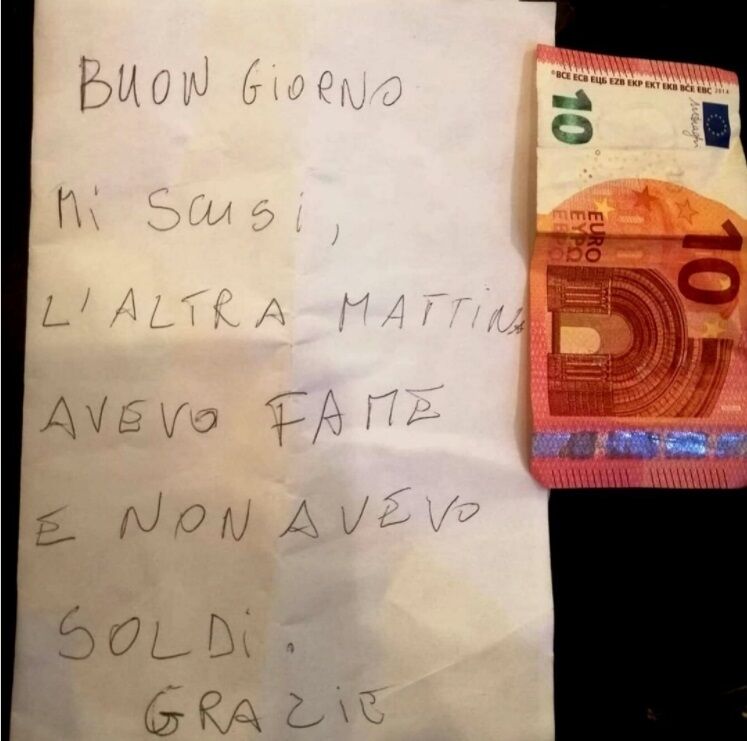 BUON GIORNO
Mi Scusi,
L'ALTRA MATTINA
AVEVO FAME
E NON AVEVO
SOLDi.
GRAZiE
©BCE ECB ЕЦБ EZB EKP EKT EKB BĊE EBC 2014
10
10
EURO
ΕΥΡΩ
ЕВРО